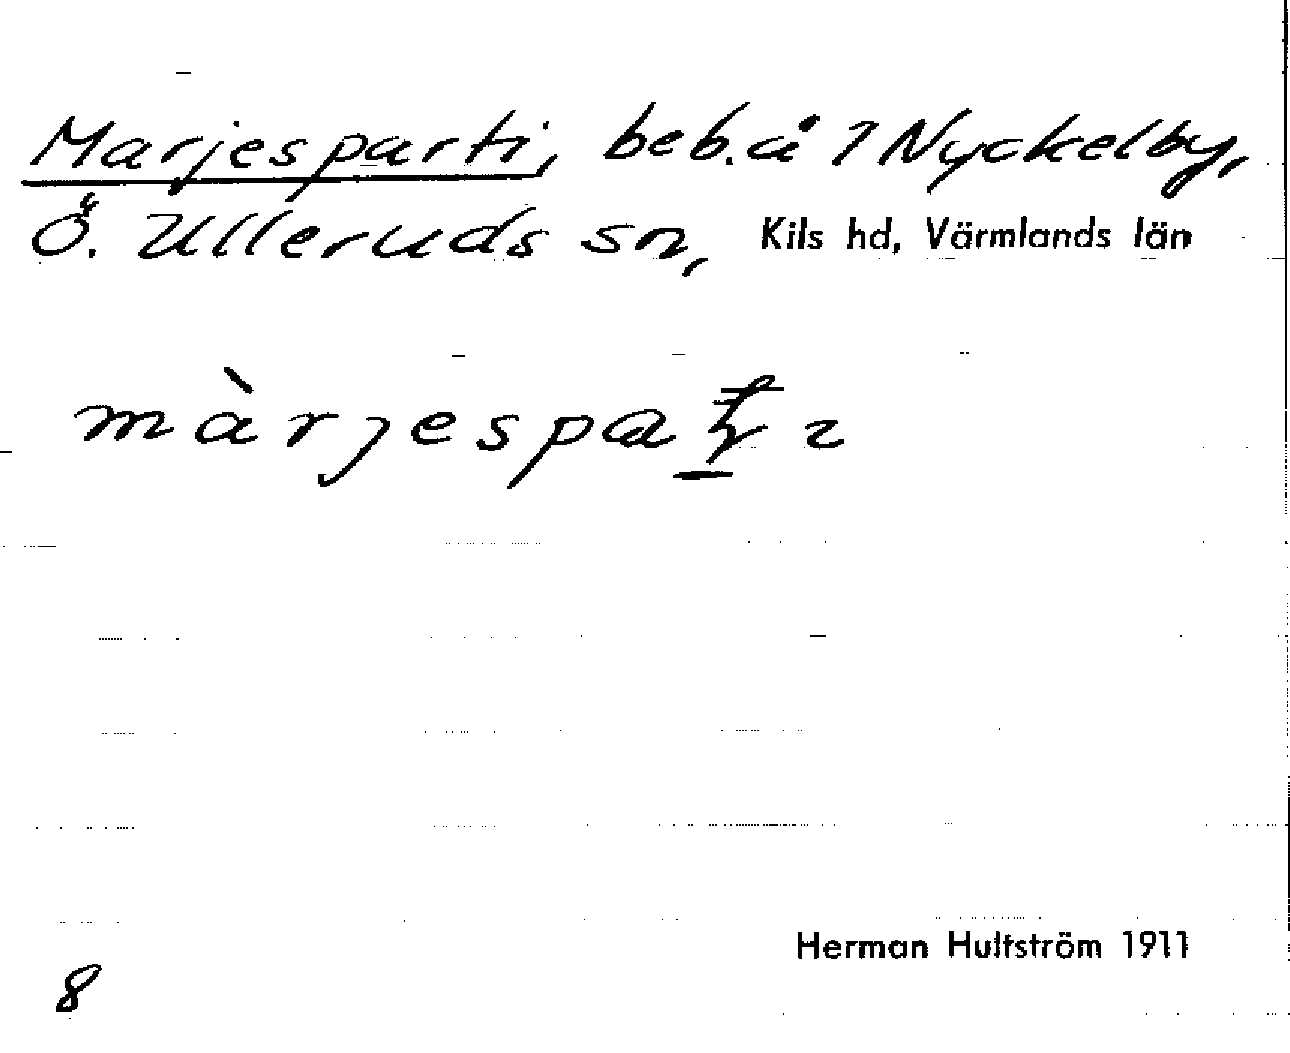 Marjesparti, beb. å 1 Nyckelby,
Ö. Ulleruds sn, Kils hd, Värmlands län
màrjespaʈɩ
Herman Hultström 1911
8